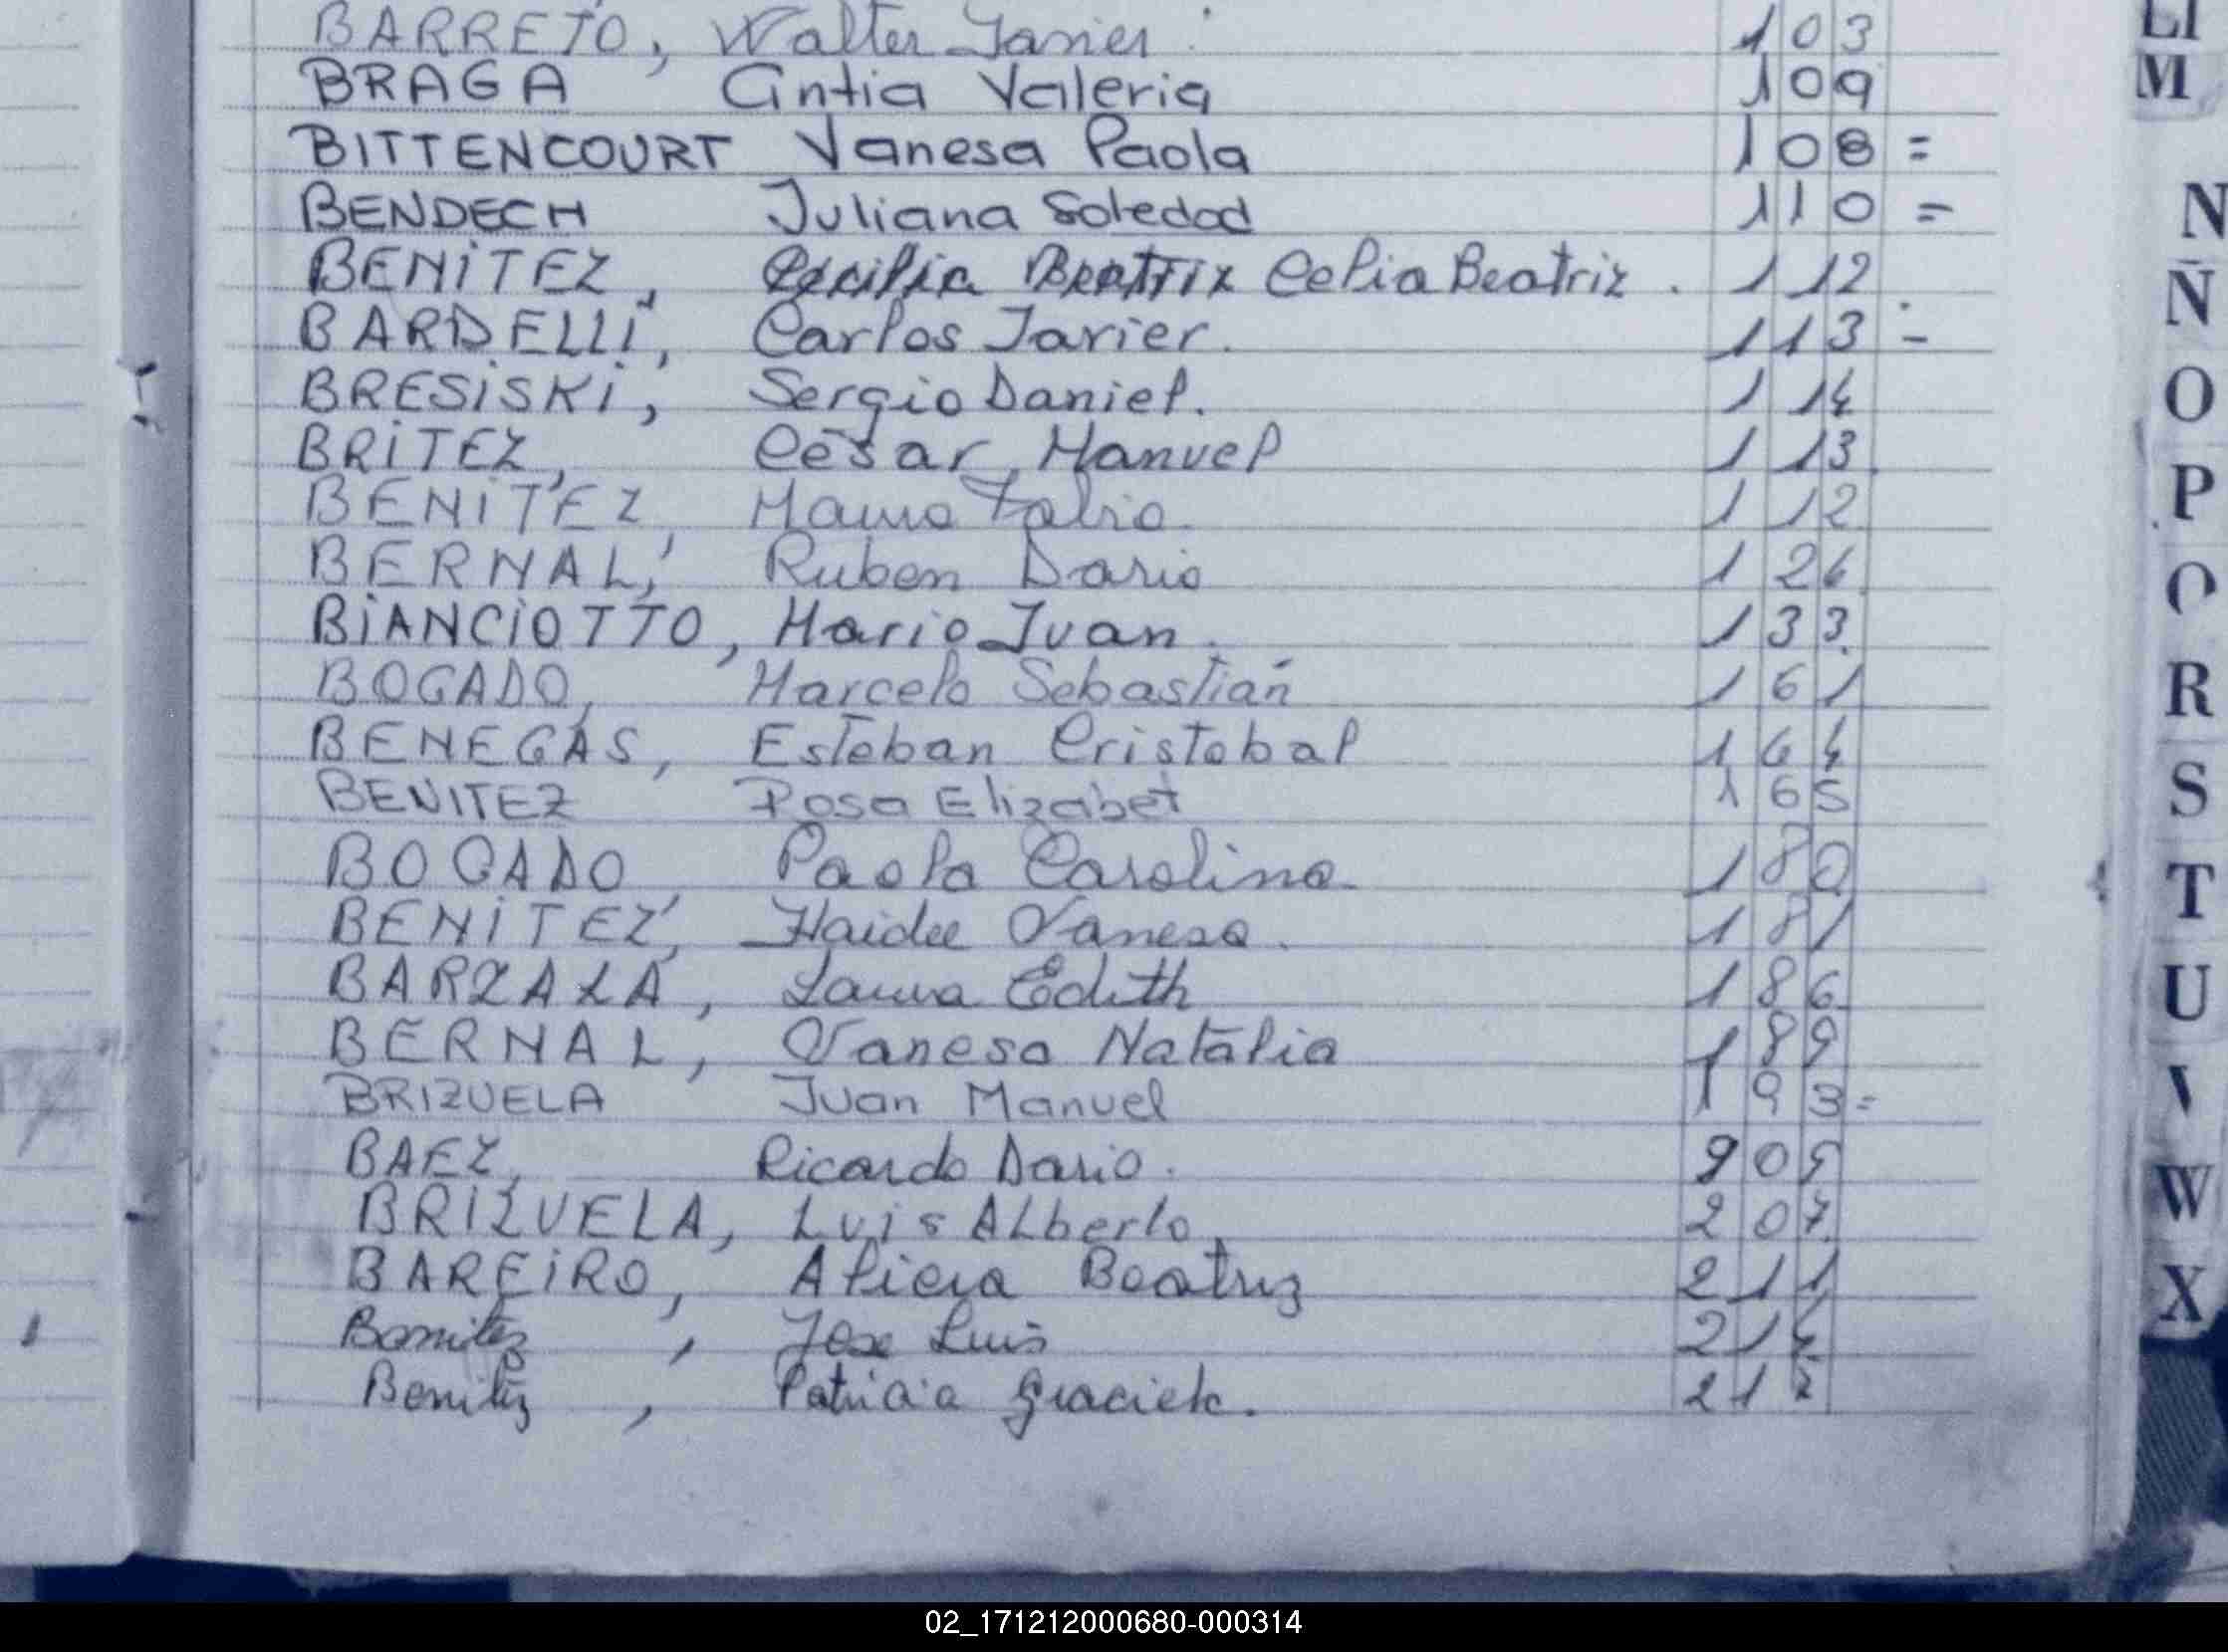 BARRETO, Walter Javier 103
BRAGA Cintia Valeria 109
BITTENCOURT Vanesa Paola 108 =
BENDECH Juliana Soledad 110 =
BENiTEZ, Celia Beatriz . 112
BARDELLi, Carlos Javier. 113 =
BRESiSKi, Sergio Daniel. 114
BRiTEZ, César Manuel 113.
BENiTEZ, Mauro Fabio 112
BERNAL, Ruben Dario 126
BiANCiOTTO, Mario Juan. 133.
BOGADO, Marcelo Sebastián 161
BENEGAS, Esteban Cristobal 164
BENITEZ Rosa Elizabet 165
BOGADO, Paola Carolina 180
BENiTEZ, Haidee Vanesa. 181
BARZALA, Laura Edith 186
BERNAL, Vanesa Natalia 189
BRIZUELA Juan Manuel 193=
BAEZ, Ricardo Dario.
BRIZUELA, Luis ALberto, 207
BAREiRO, Alicia Beatriz 211
Benitez , Jose Luis 214
Benitez , Patricia Graciela. 217
LI
M
N
Ñ
O
P
R
S
T
U
V
W
X
02_171212000680-000314